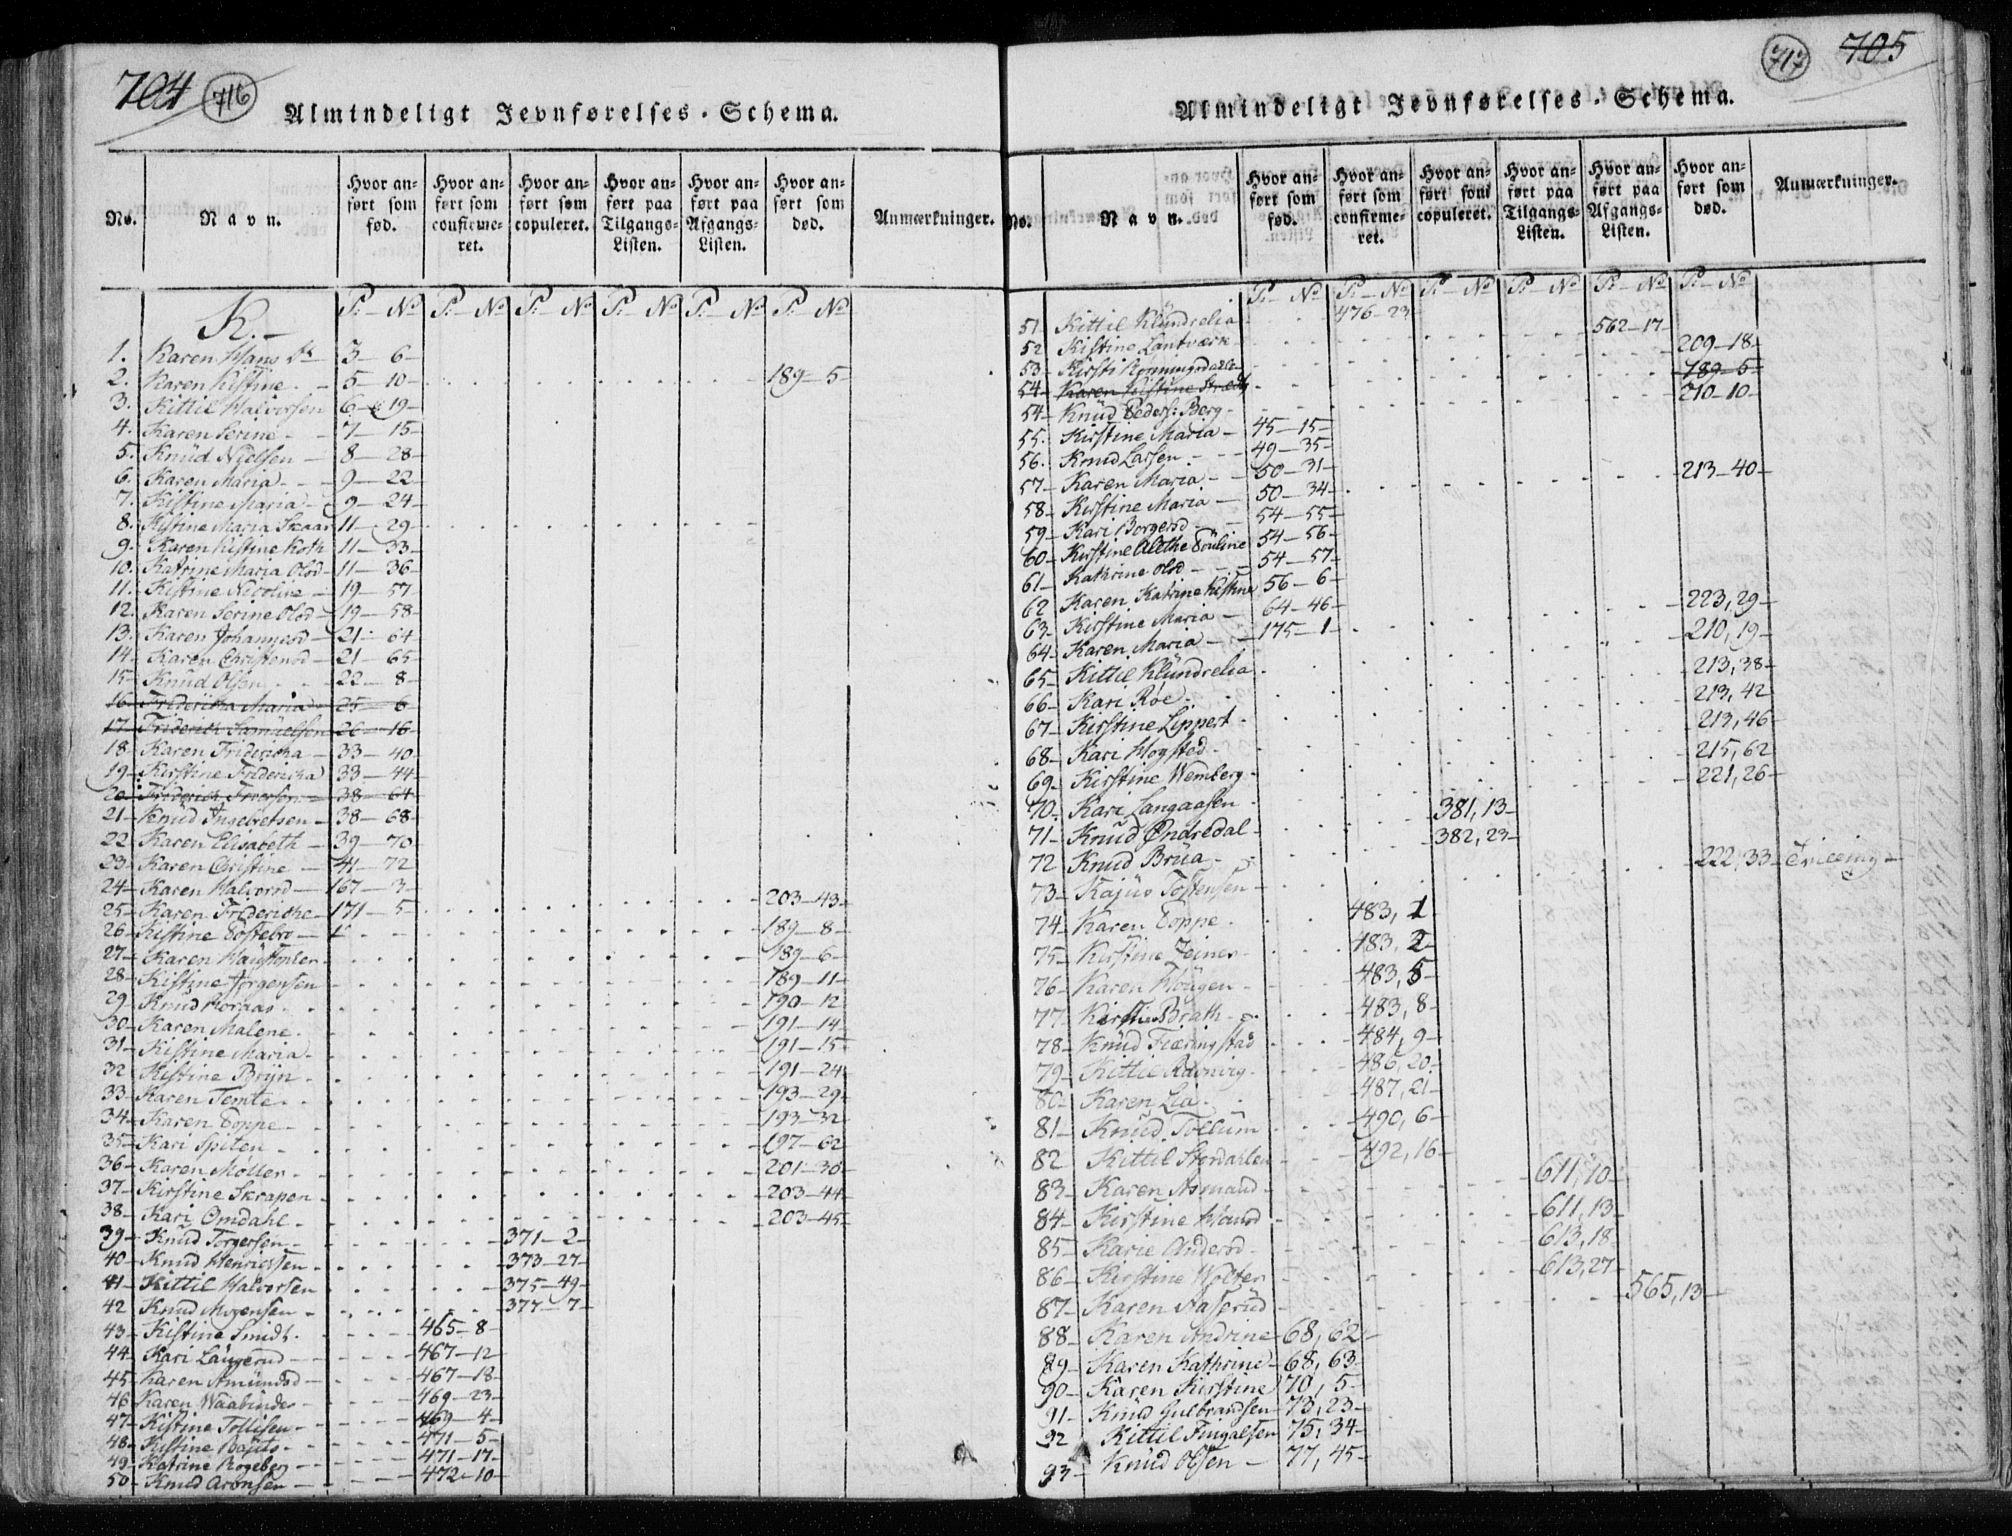 704 716
Almindeligt Jevnførelses-Schema.
No. Navn. Hvor anført som fød. Hvor anført som confirmeret. Hvor anført som copuleret. Hvor anført paa Tilgangs-Listen. Hvor anført paa Afgangs-Listen. Hvor anført som død. Anmærkninger.
K.- P. - No P. - No P. - No P. - No P. - No P. - No
1. Karen Hans Dr 3 - 6
2. Karen Kistine 5 - 10 189 - 5
3. Kittil Halvorsen 6 - 19
4. Karen Serine 7 - 15
5. Knüd Nielsen 8 - 28
6. Karen Maria 9 - 22
7. Kistine Maria 9 - 24
8. Kistine Maria Skaar 11 - 29
9. Karen Kistine Roth 11 - 33
10. Katrine Maria Olsd 11 - 36
11. Kistine Nicoline 19 - 57
12. Karen Serine Olsd 19 - 58
13. Karen Johannesd 21 - 64
14. Karen Christensd 21 - 65
15. Knud Olsen 22 - 8
16. Fridericka Maria 25 - 6
17. Friderich Samüelsen 26 - 16
18. Karen Fridericka 33 - 40
19. Kirstine Fridericka 33 - 44
20. Friderich Iversen 38 - 64
21. Knüd Ingebretsen 38 - 68
22. Karen Elisabeth 39 - 70
23. Karen Christine 41 - 72
24. Karen Halvorsd 167 - 3
25. Karen Fridericke 171 - 5 203 - 43
26. Kistine Tostebro 189 - 8
27. Karen 189 - 6
28. Kistine Jørgensen 189 - 11
29. Knud Horaas 190 - 12
30. Karen Malene 191 - 14
31. Kistine Maria 191 - 15
32. Kistine Brijn 191 - 24
33. Karen Temte 193 - 29
34. Karen Toppe 193 - 32
35. Kari Spiten 197 - 62
36. Karen Møller 201 - 30
37. Kirstine Skrapen 203 - 44
38. Kari Omdahl 203 - 45
39. Knüd Torgersen 371 - 2
40. Knud Henricssen 373 - 27
41. Kittil Halvorsen 375 - 49
42. Knud Mogensen 377 - 7
43. Kistine Smidt 465 - 8
44. Kari Laugerud 467 - 12
45. Karen Amündsd 467 - 18
46. Karen Waabinder 469 - 23
47. Kistine Tollisen 469 - 4
48. Kistine 471 - 5
49. Katrine Rogeberg 471 - 17
50. Knud Aronsen 472 - 10
717 705
Almindeligt Jevnførelses-Schema.
No. Navn. Hvor anført som fød. Hvor anført som confirmeret. Hvor anført som copuleret. Hvor anført paa Tilgangs-Listen. Hvor anført paa Afgangs-Listen. Hvor anført som død. Anmærkninger.
P. - No P. - No P. - No P. - No P. - No P. - No
51 Kittil Klündrelia 476 - 23
52 Kistine Lantværk 562 - 17
53 Kirsti 209 - 18
54 Karen Kistine 189 - 5
54 Knüd Peders: Berg 210 - 10
55. Kirstine Maria 45 - 15
56. Knud Larsen 49 - 35
57 Karen Maria 50 - 31 213 - 40
58 Kirstine Maria 50 - 34
59 Kari Borgersd 54 - 55
60 Kirstine Alethe Pouline 54 - 56
61 Kathrine Olsd 54 - 57
62 Karen Katrine Kistine 56 - 6
63 Kirstine Maria 64 - 46 223, 29
64 Karen Maria 175 - 1 210, 19
65 Kittil Klündrelia 213, 38
66 Kari Roe 213, 42
67 Kirstine Lippert 213, 46
68 Kari Hogsted 215, 62
69 Kirstine Wemberg 221, 26
70. Kari Langaasen 381, 13
71 Knud Ondredal 382, 23
72 Knud Brua 222, 33 Tvilling
73 Kajus Tostensen
74 Karen Toppe 483, 1
75 Kirstine Zeiner 483, 2
76 Karen Hougen 483, 5
77 Kirstie Brath 483, 8
78 Knüd Fiæringstad 484, 9
79 Kittil Ravnvig 486, 20
80 Karen Lia 487, 21
81 Knüd Tollum 490, 6
82 Kittil Stordahlen 492, 16
83 Karen Asmand 611, 10
84 Kirstine Hansd 611, 13
85 Karie Andersd 613, 18
86 Kirstine Wolter 613, 27
87 Karen Aaserüd 565, 13
88 Karen Andrine 68, 62
89 Karen Kathrine 68, 63
90 Karen Kirstine 70, 5
91 Knüd Gulbrandsen 73, 23
92 Kittil Fingalsen 75, 34
93 Knüd Olsen 77, 45